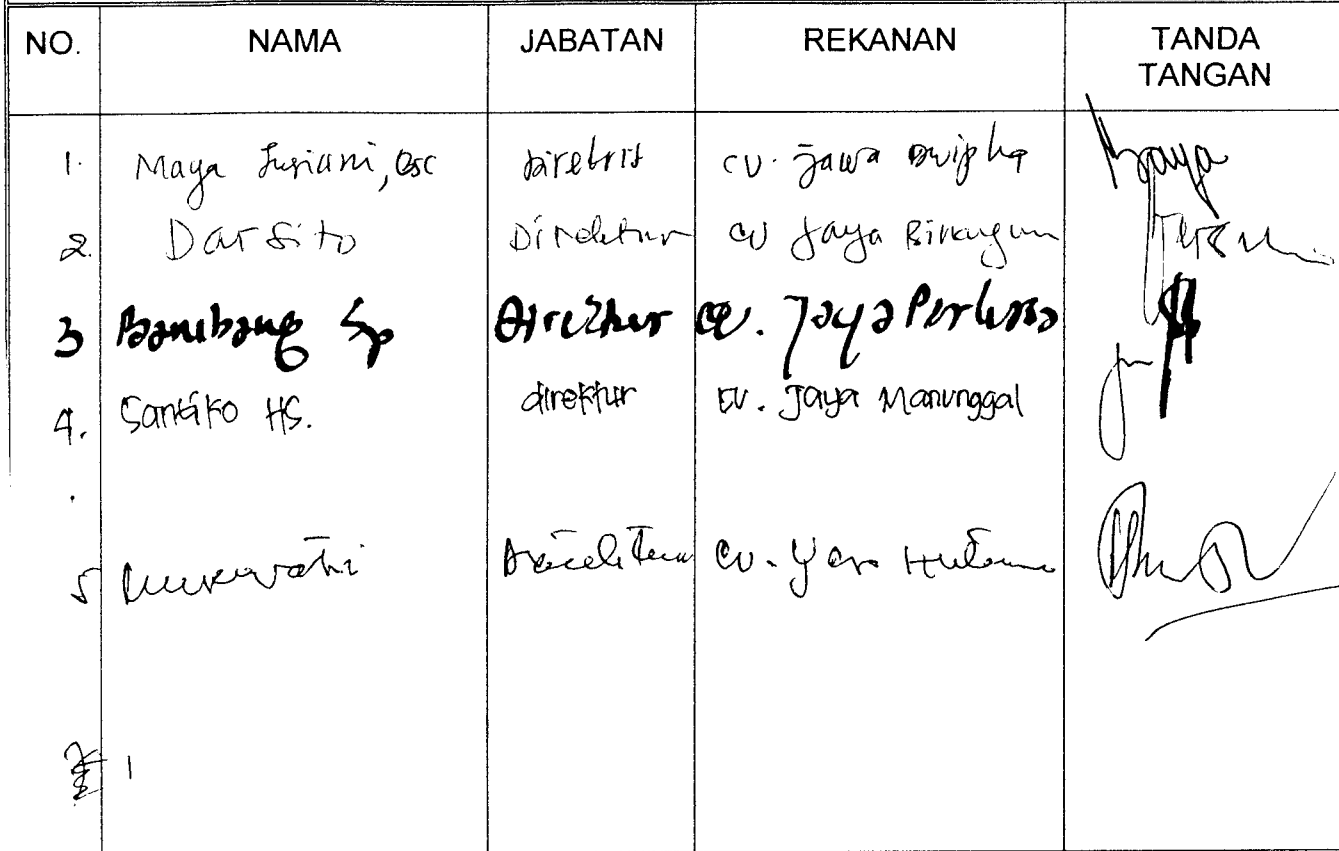 NO. NAMA JABATAN REKANAN TANDA TANGAN
1. Maya Susiani, Bsc direktris CV. Jawa Dwipha
2. Darsito Direktur CV Jaya
3 Bambang Sp Direktur CV. Jaya Perkasa
4. Santiko HS. direktur CV. Jaya Manunggal
5 Direktur CV.